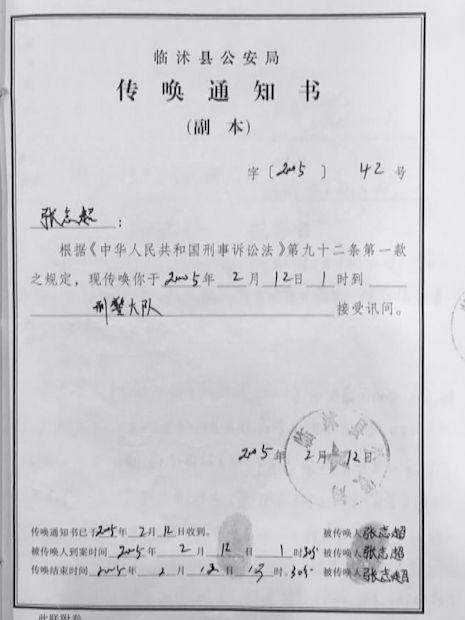 临沭县公安局
传唤通知书
(副本)
字〔2005〕 42号
张志超：
根据《中华人民共和国刑事诉讼法》第九十二条第一款
之规定，现传唤你于2005年2月12日1时到
刑警大队接受讯问。
临沭县公安局
2005年2月12日
传唤通知书已于2005年2月12日收到。 被传唤人张志超
被传唤人到案时间2005年2月12日1时30分 被传唤人张志超
传唤结束时间2005年2月12日13时30分 被传唤人张志超
此联附卷